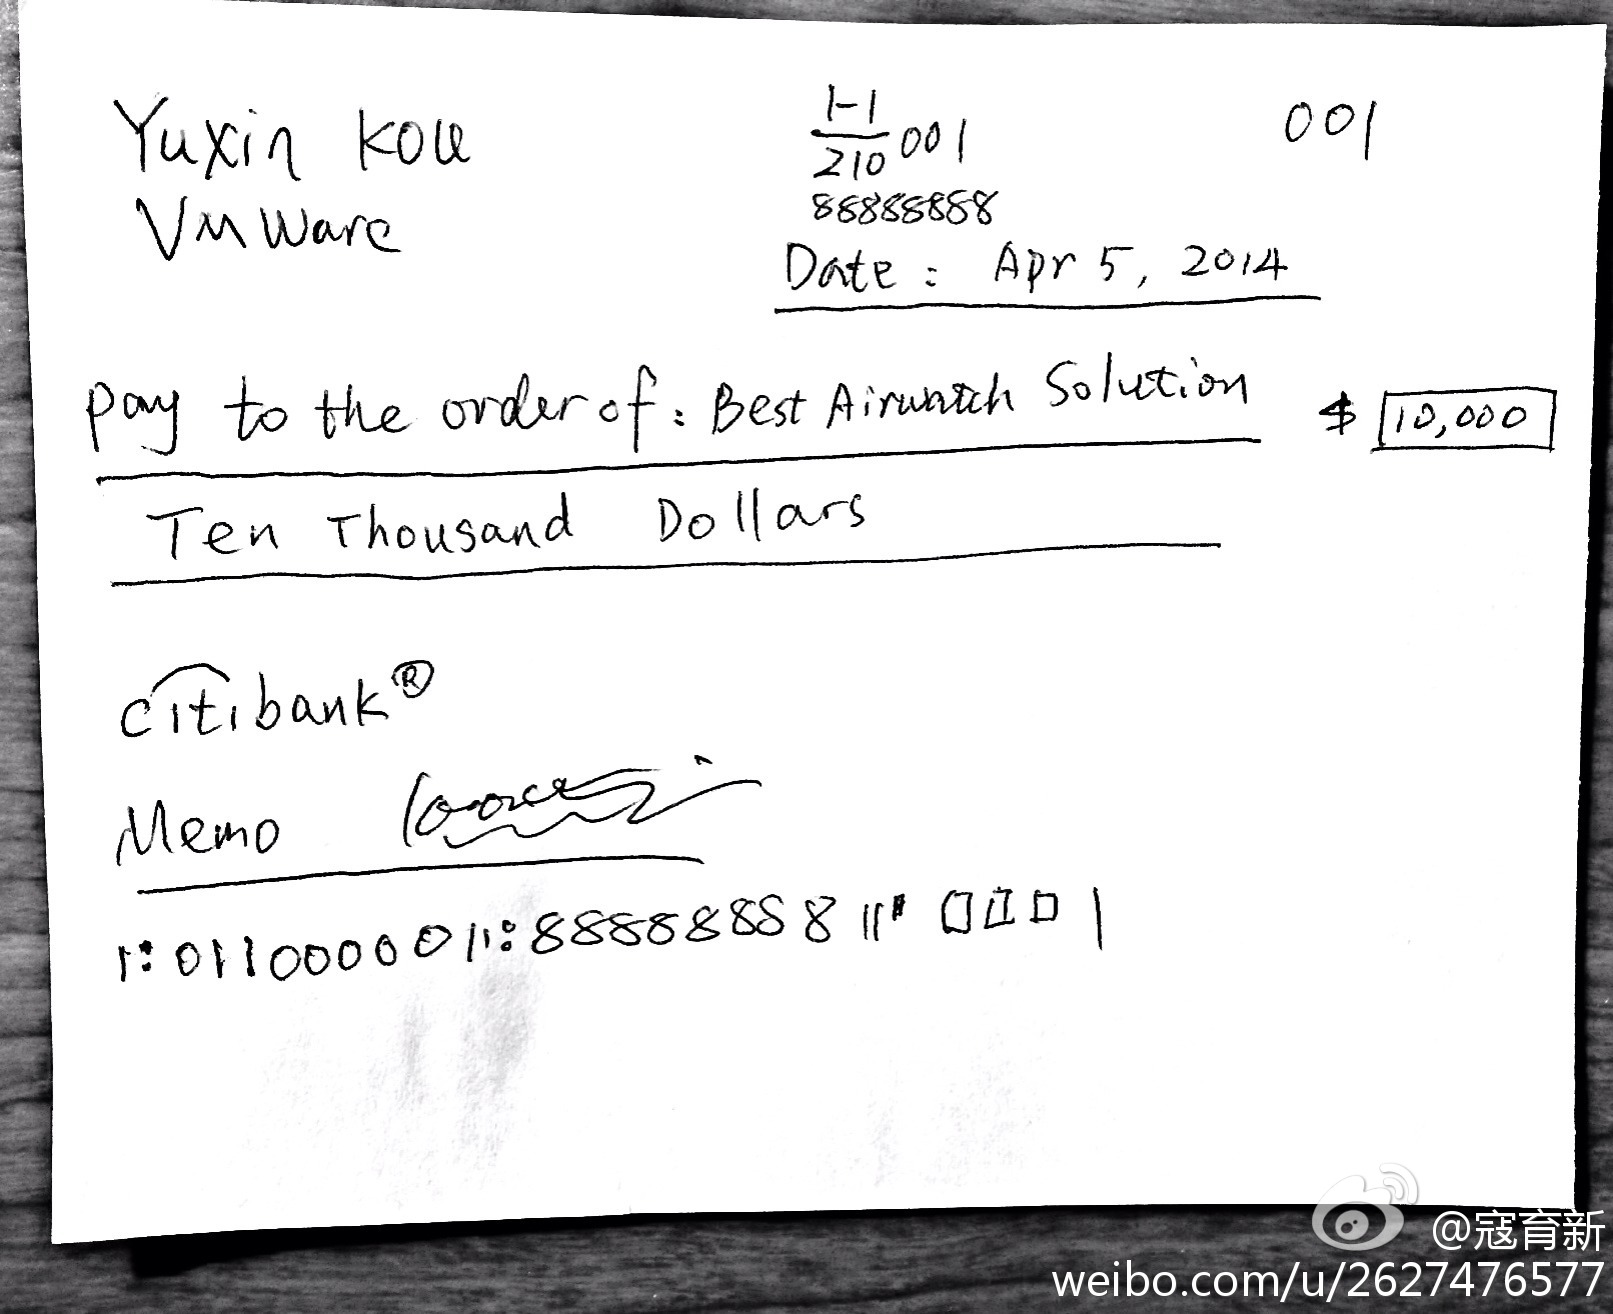 Yuxin Kou
VMware
1-1
210 001
88888888
001
Date: Apr 5, 2014
Pay to the order of: Best Airwatch Solution $ 10,000
Ten Thousand Dollars
citibank®
Memo
⑆011000001⑆88888888⑈ 0001
@寇育新
weibo.com/u/2627476577